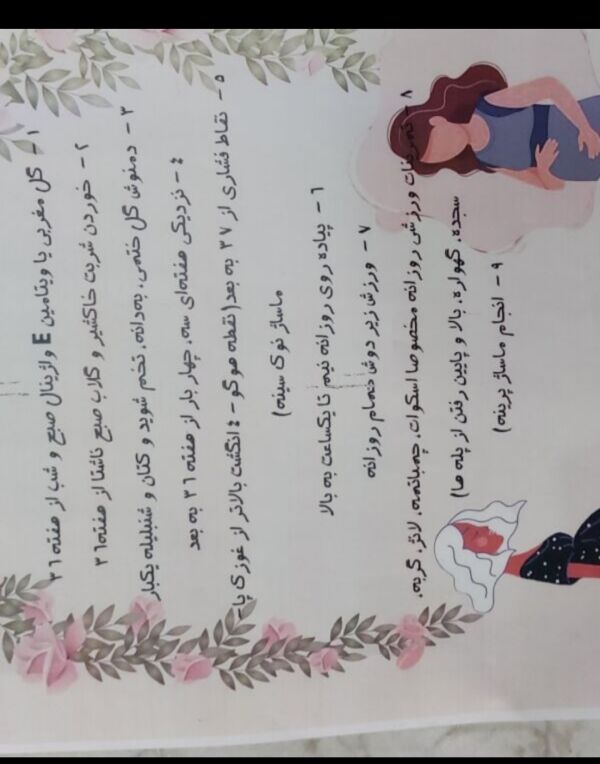 ۱- گل مغربی یا ویتامین E واژینال صبح و شب از هفته ۳۶
۲- خوردن شربت خاکشیر و گلاب صبح ناشتا از هفته ۳۶
۳- دمنوش گل ختمی، به‌دانه، تخم شوید و کتان و شنبلیله یکبار
۴- نزدیکی هفته‌ای سه، چهار بار از هفته ۳۶ به بعد
۵- نقاط فشاری از ۳۷ به بعد(نقطه هوگو-۴ انگشت بالاتر از غوزی پا-
ماساژ نوک سینه)
۶- پیاده روی روزانه نیم تا یکساعت به بالا
۷- ورزش زیر دوش حمام روزانه
۸- تمرینات ورزشی روزانه مخصوصا اسکوات، چمباتمه، لانژ، گربه،
سجده، گهواره، بالا و پایین رفتن از پله ها)
۹- انجام ماساژ پرینه)